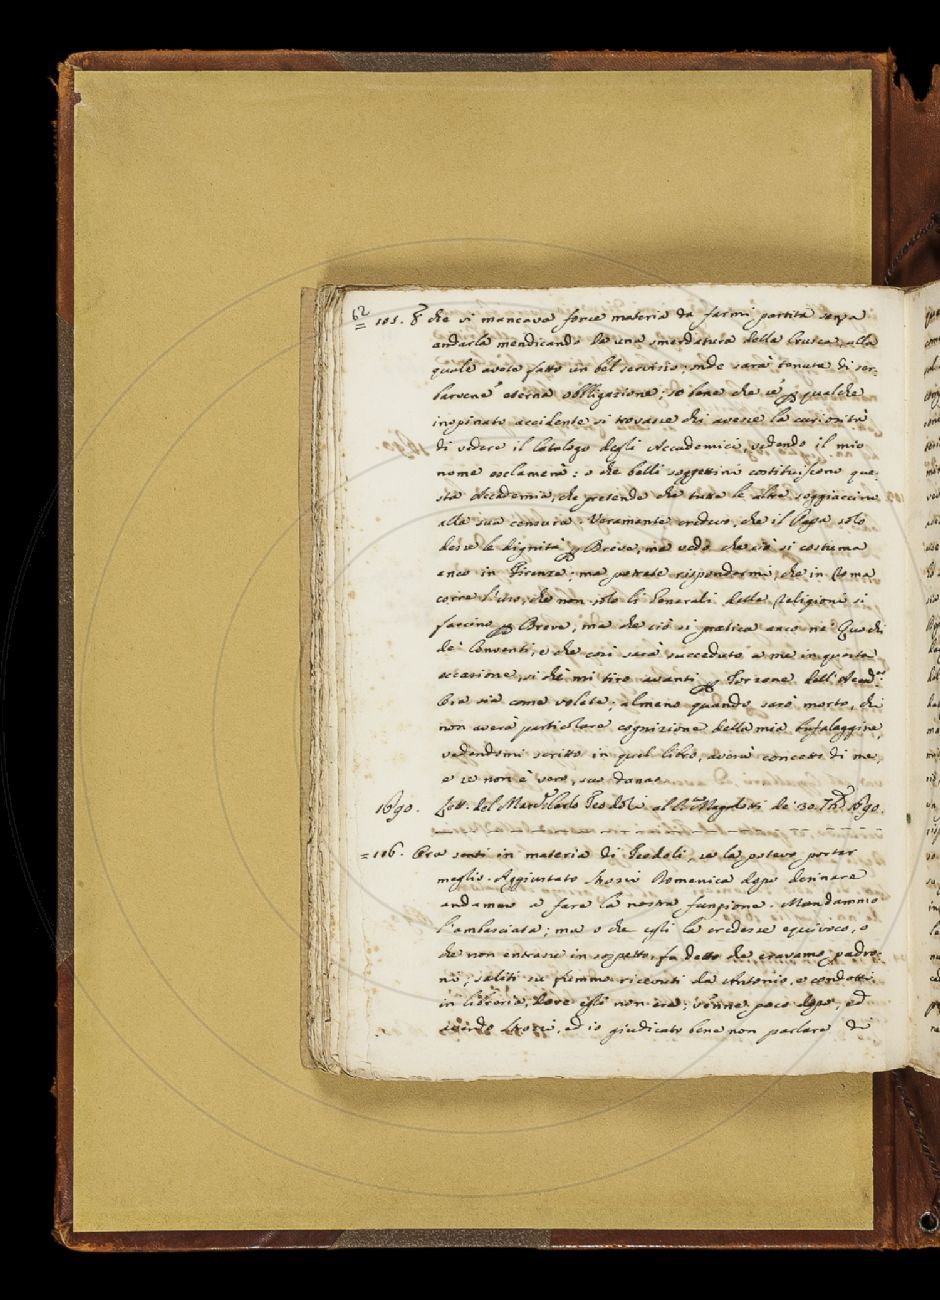 62
101. E che vi mancava forse materia da farmi partita senza
andarla mendicando da una smerditura della Crusca, alla
quale avete fatto un bel servizio; onde sarà tenuta di ser-
barvene eterna obbligazione; so bene che se p qualche
inopinato accidente si trovasse chi avesse la curiosità
di vedere il Catalogo degli Accademici, vedendo il mio
nome esclamerà: o che belli soggettini costituiscono que-
sta Accademia, che pretende che tutte le altre soggiaccino
alla sua censura. Veramente credevo, che il Papa solo
desse le dignità p Breve, ma vedo che ciò si costuma
anco in Firenze; ma potrete rispondermi, che in Roma
corre l'uso, che non solo li Generali delle Religioni si
faccino p Breve, ma che ciò si pratica anco ne'
de' Conventi, e che così sarà succeduto a me in questa
occasione, si che mi tiro avanti p Torzone dell'Accad.
Ora sia come volete; almeno quando sarò morto, chi
non averà particolare cognizione della mia bufalaggine,
vedendomi scritto in quel libro, averà concetto di me,
e se non è vero, suo danno
1690. Lett. del March. Carlo Teodoli al Magalotti de' 30. 1690.
= 106. Ora senti in materia di Teodoli, se la potevo portar
meglio. Aggiustato Domenica dopo desinare
andamo a fare la nostra funzione. Mandammo
l'ambasciata; ma o che egli la credesse equivoco, o
che non entrasse in sospetto, fu detto che eravamo padro-
ni; saliti su fummo ricevuti da Antonio, e condotti
in libreria, dove egli non era; venne poco dopo, ed
avendo ed io giudicato bene non parlare di